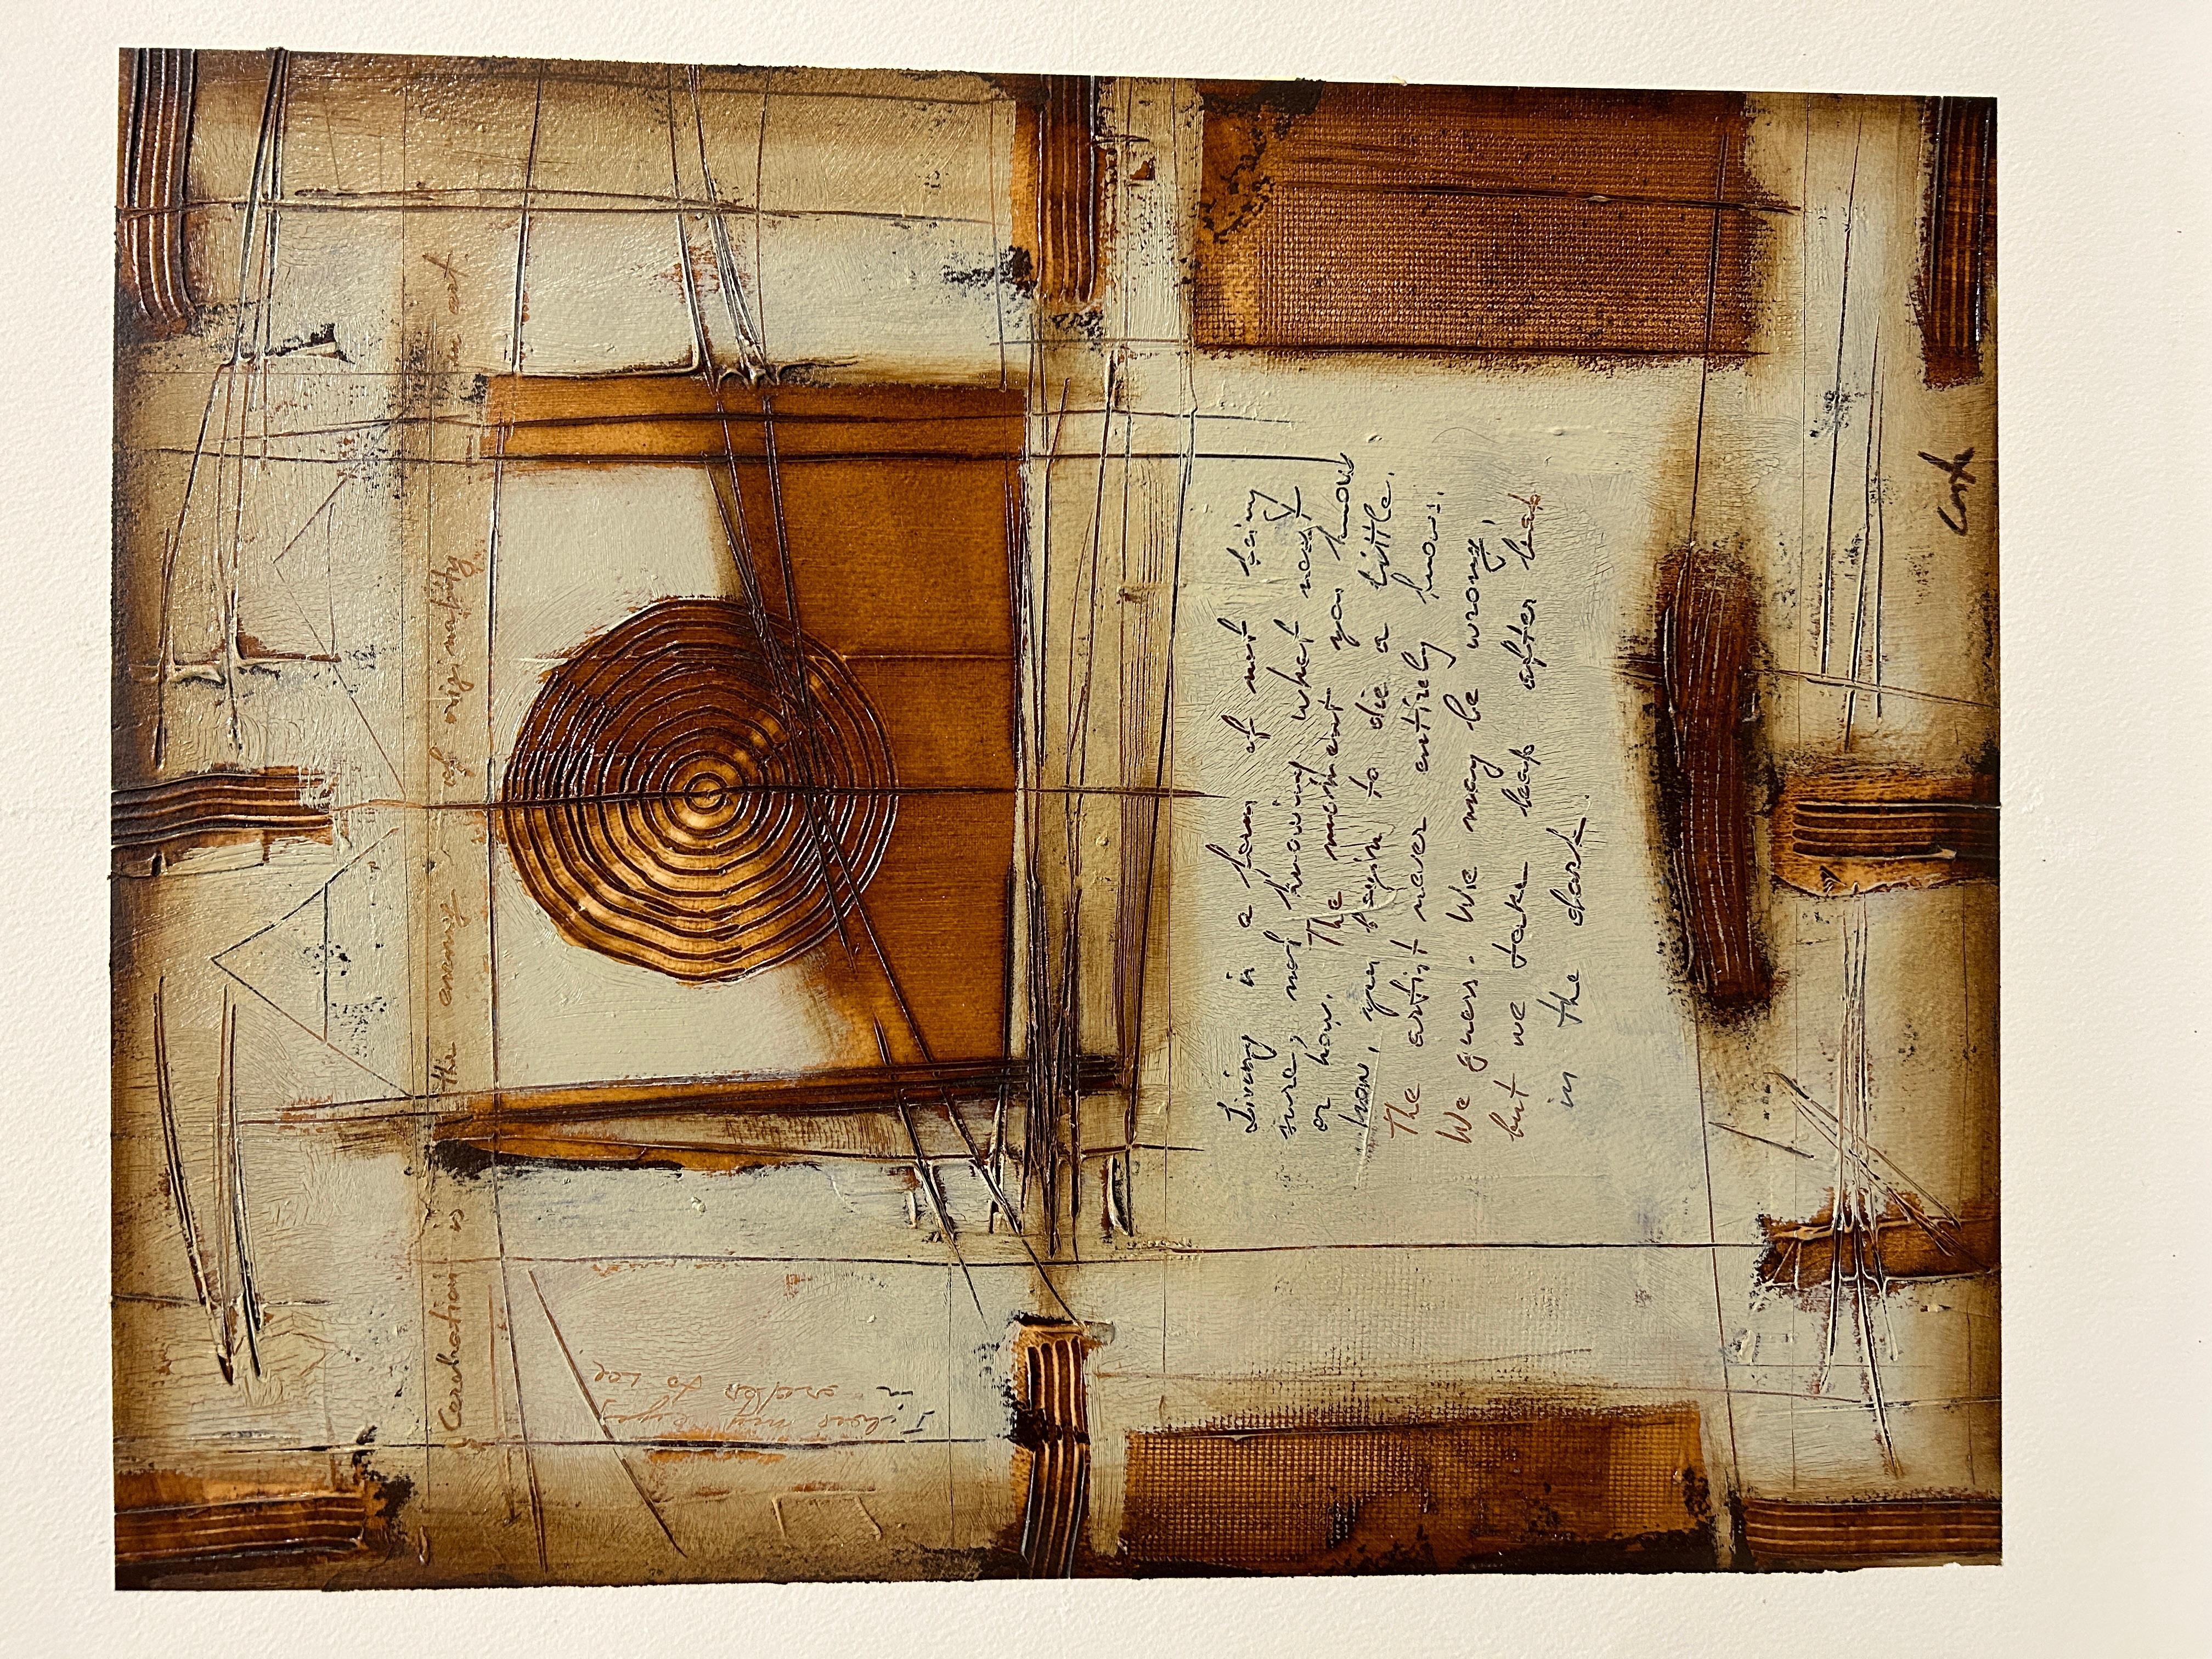 Cerebration is the enemy of originality in art.
I shut my eyes
in order to see
Living is a form of not being
sure, not knowing what next
or how. The moment you know
how, you begin to die a little.
The artist never entirely knows.
We guess. We may be wrong,
but we take leap after leap
in the dark.